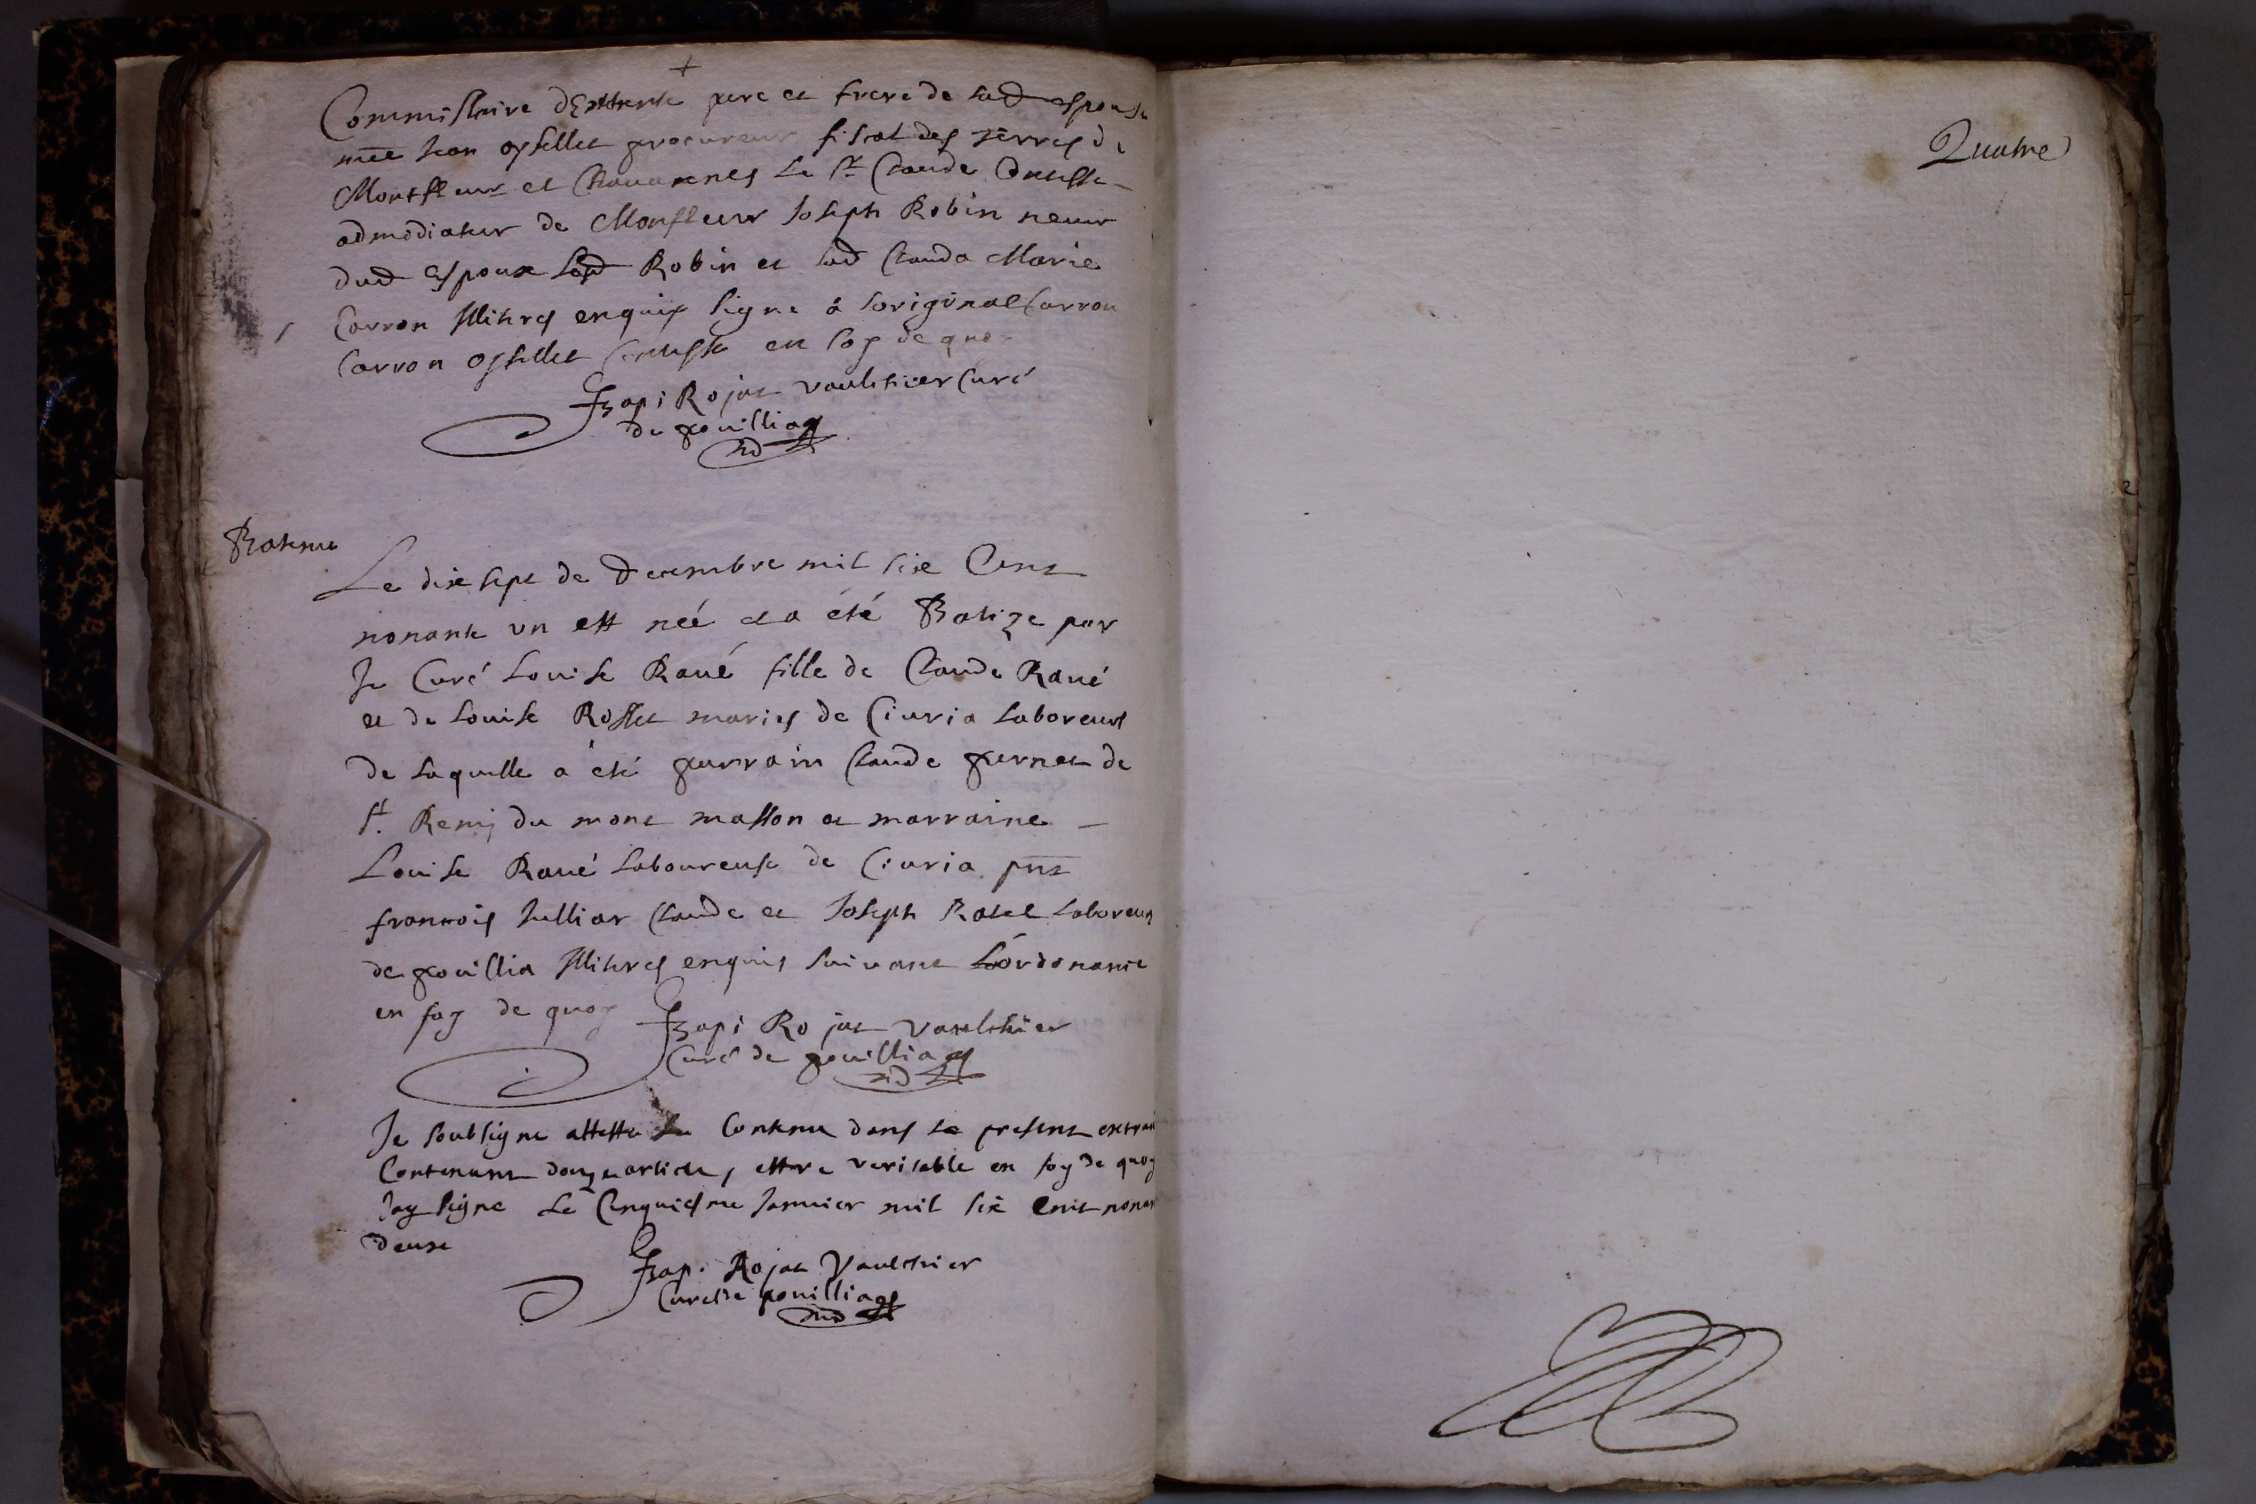 Commissaire dExtente pere et frere de lad espouse
me Jean oysellet procureur fiscal des terres de
Montfleur et Chavannes Le Sr Claude
admodiateur de Monfleur Joseph Robin neveu
dud Espoux Led Robin et lad Clauda Marie
Carron illitres enquis signe à loriginal Carron
Carron oysellet en foy de quoy
Bapi Rojat vaulchier Curé
de pouillia
Bateme
Le dix sept de Decembre mil six Cent
nonante un est neé et a été Batize par
Je Curé Louise Raué fille de Claude Raué
et de Louise Rosset maries de Ciuria laboreurs
de laquelle a été parrain Claude pernet de
St. Remy du mont masson et marraine
Louise Raué laboureuse de Ciuria pnt
francois Julliar Claude et Joseph Ratel laboreurs
de pouillia illitres enquis suivant Lórdonance
en foy de quoy
Bapi Rojat Vaulchier
Curé de pouillia
Je soubsigne atteste Le Contenu dans le present extrait
Contenant douze article, estre veritable en foy de quoy
Jay signe Le Cinquiesme Janvier mil six cent nonan
deux
Bap. Rojat Vaulchier
Curé de pouillia
Quatre